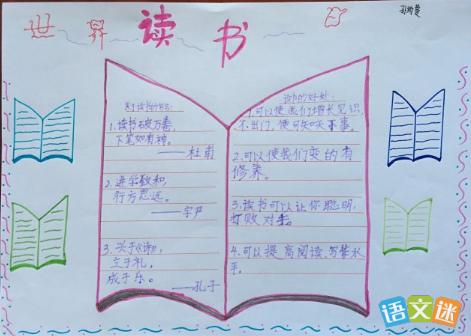 世界读书日
读书破万卷,
下笔如有神。
——杜甫
2. 进学致和,
行方思远。
立于礼,
成于乐。
——孔子
读书的好处:
1. 可以使我们增长见识,
不出门,便可知天下事。
2. 可以使我们变的有
修养。
3. 读书可以让你聪明,
打败对手。
4. 可以提高阅读、写作水
平。
语文迷